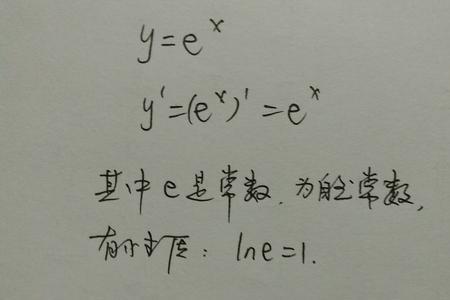 y=e^x
y'=(e^x)'=e^x
其中e是常数.为自然常数,
有性质: lne=1.